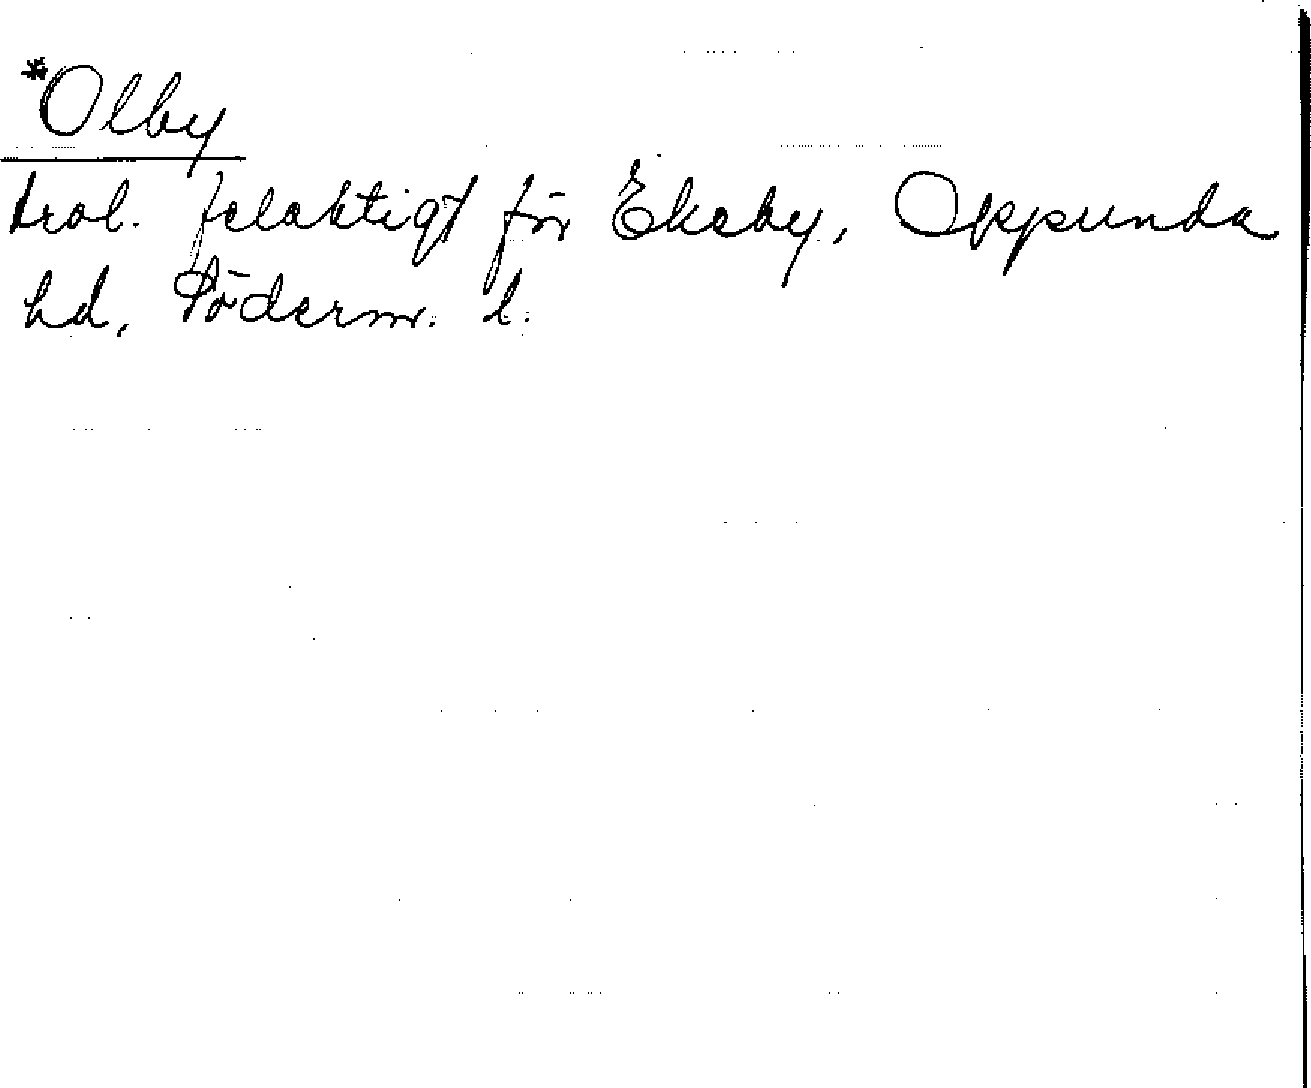 *Olby
trol. felaktigt för Ekeby, Oppunda
hd, Söderm. l.